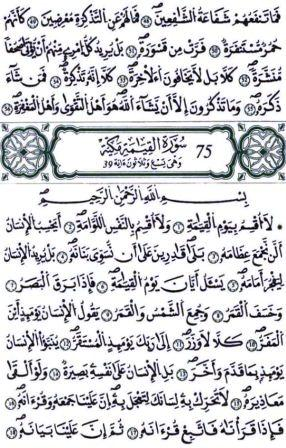 فَمَا تَنفَعُهُمْ شَفَاعَةُ الشَّافِعِينَ فَمَا لَهُمْ عَنِ التَّذْكِرَةِ مُعْرِضِينَ كَأَنَّهُمْ
حُمُرٌ مُّسْتَنفَرَةٌ فَرَّتْ مِن قَسْوَرَةٍ بَلْ يُرِيدُ كُلُّ امْرِئٍ مِّنْهُمْ أَن يُؤْتَى صُحُفًا
مُّنَشَّرَةً كَلَّا بَل لَّا يَخَافُونَ الْآخِرَةَ كَلَّا إِنَّهُ تَذْكِرَةٌ فَمَن شَاءَ
ذَكَرَهُ وَمَا تَذْكُرُونَ إِلَّا أَن يَشَاءَ اللَّهُ هُوَ أَهْلُ التَّقْوَى وَأَهْلُ الْمَغْفِرَةِ
75 سُورَةُ الْقِيَامَةِ مَكِّيَّة
وَهِيَ تِسْعٌ وَثَلَاثُونَ ءَايَة 39
بِسْمِ اللَّهِ الرَّحْمَنِ الرَّحِيمِ
لَا أُقْسِمُ بِيَوْمِ الْقِيَامَةِ وَلَا أُقْسِمُ بِالنَّفْسِ اللَّوَّامَةِ أَيَحْسِبُ الْإِنسَانُ
أَلَّن نَّجْمَعَ عِظَامَهُ بَلَى قَادِرِينَ عَلَى أَن نُّسَوِّيَ بَنَانَهُ بَلْ يُرِيدُ الْإِنسَانُ
لِيَفْجُرَ أَمَامَهُ يَسْأَلُ أَيَّانَ يَوْمُ الْقِيَامَةِ فَإِذَا بَرَقَ الْبَصَرُ
وَخَسَفَ الْقَمَرُ وَجُمِعَ الشَّمْسُ وَالْقَمَرُ يَقُولُ الْإِنسَانُ يَوْمَئِذٍ أَيْنَ
الْمَفَرُّ كَلَّا لَا وَزَرَ إِلَى رَبِّكَ يَوْمَئِذٍ الْمُسْتَقَرُّ يُنَبَّؤُا الْإِنسَانُ
يَوْمَئِذٍ بِمَا قَدَّمَ وَأَخَّرَ بَلِ الْإِنسَانُ عَلَى نَفْسِهِ بَصِيرَةٌ وَلَوْ أَلْقَى
مَعَاذِيرَهُ لَا تُحَرِّكْ بِهِ لِسَانَكَ لِتَعْجَلَ بِهِ إِنَّ عَلَيْنَا جَمْعَهُ وَقُرْءَانَهُ
فَإِذَا قَرَأْنَاهُ فَاتَّبِعْ قُرْءَانَهُ ثُمَّ إِنَّ عَلَيْنَا بَيَانَهُ